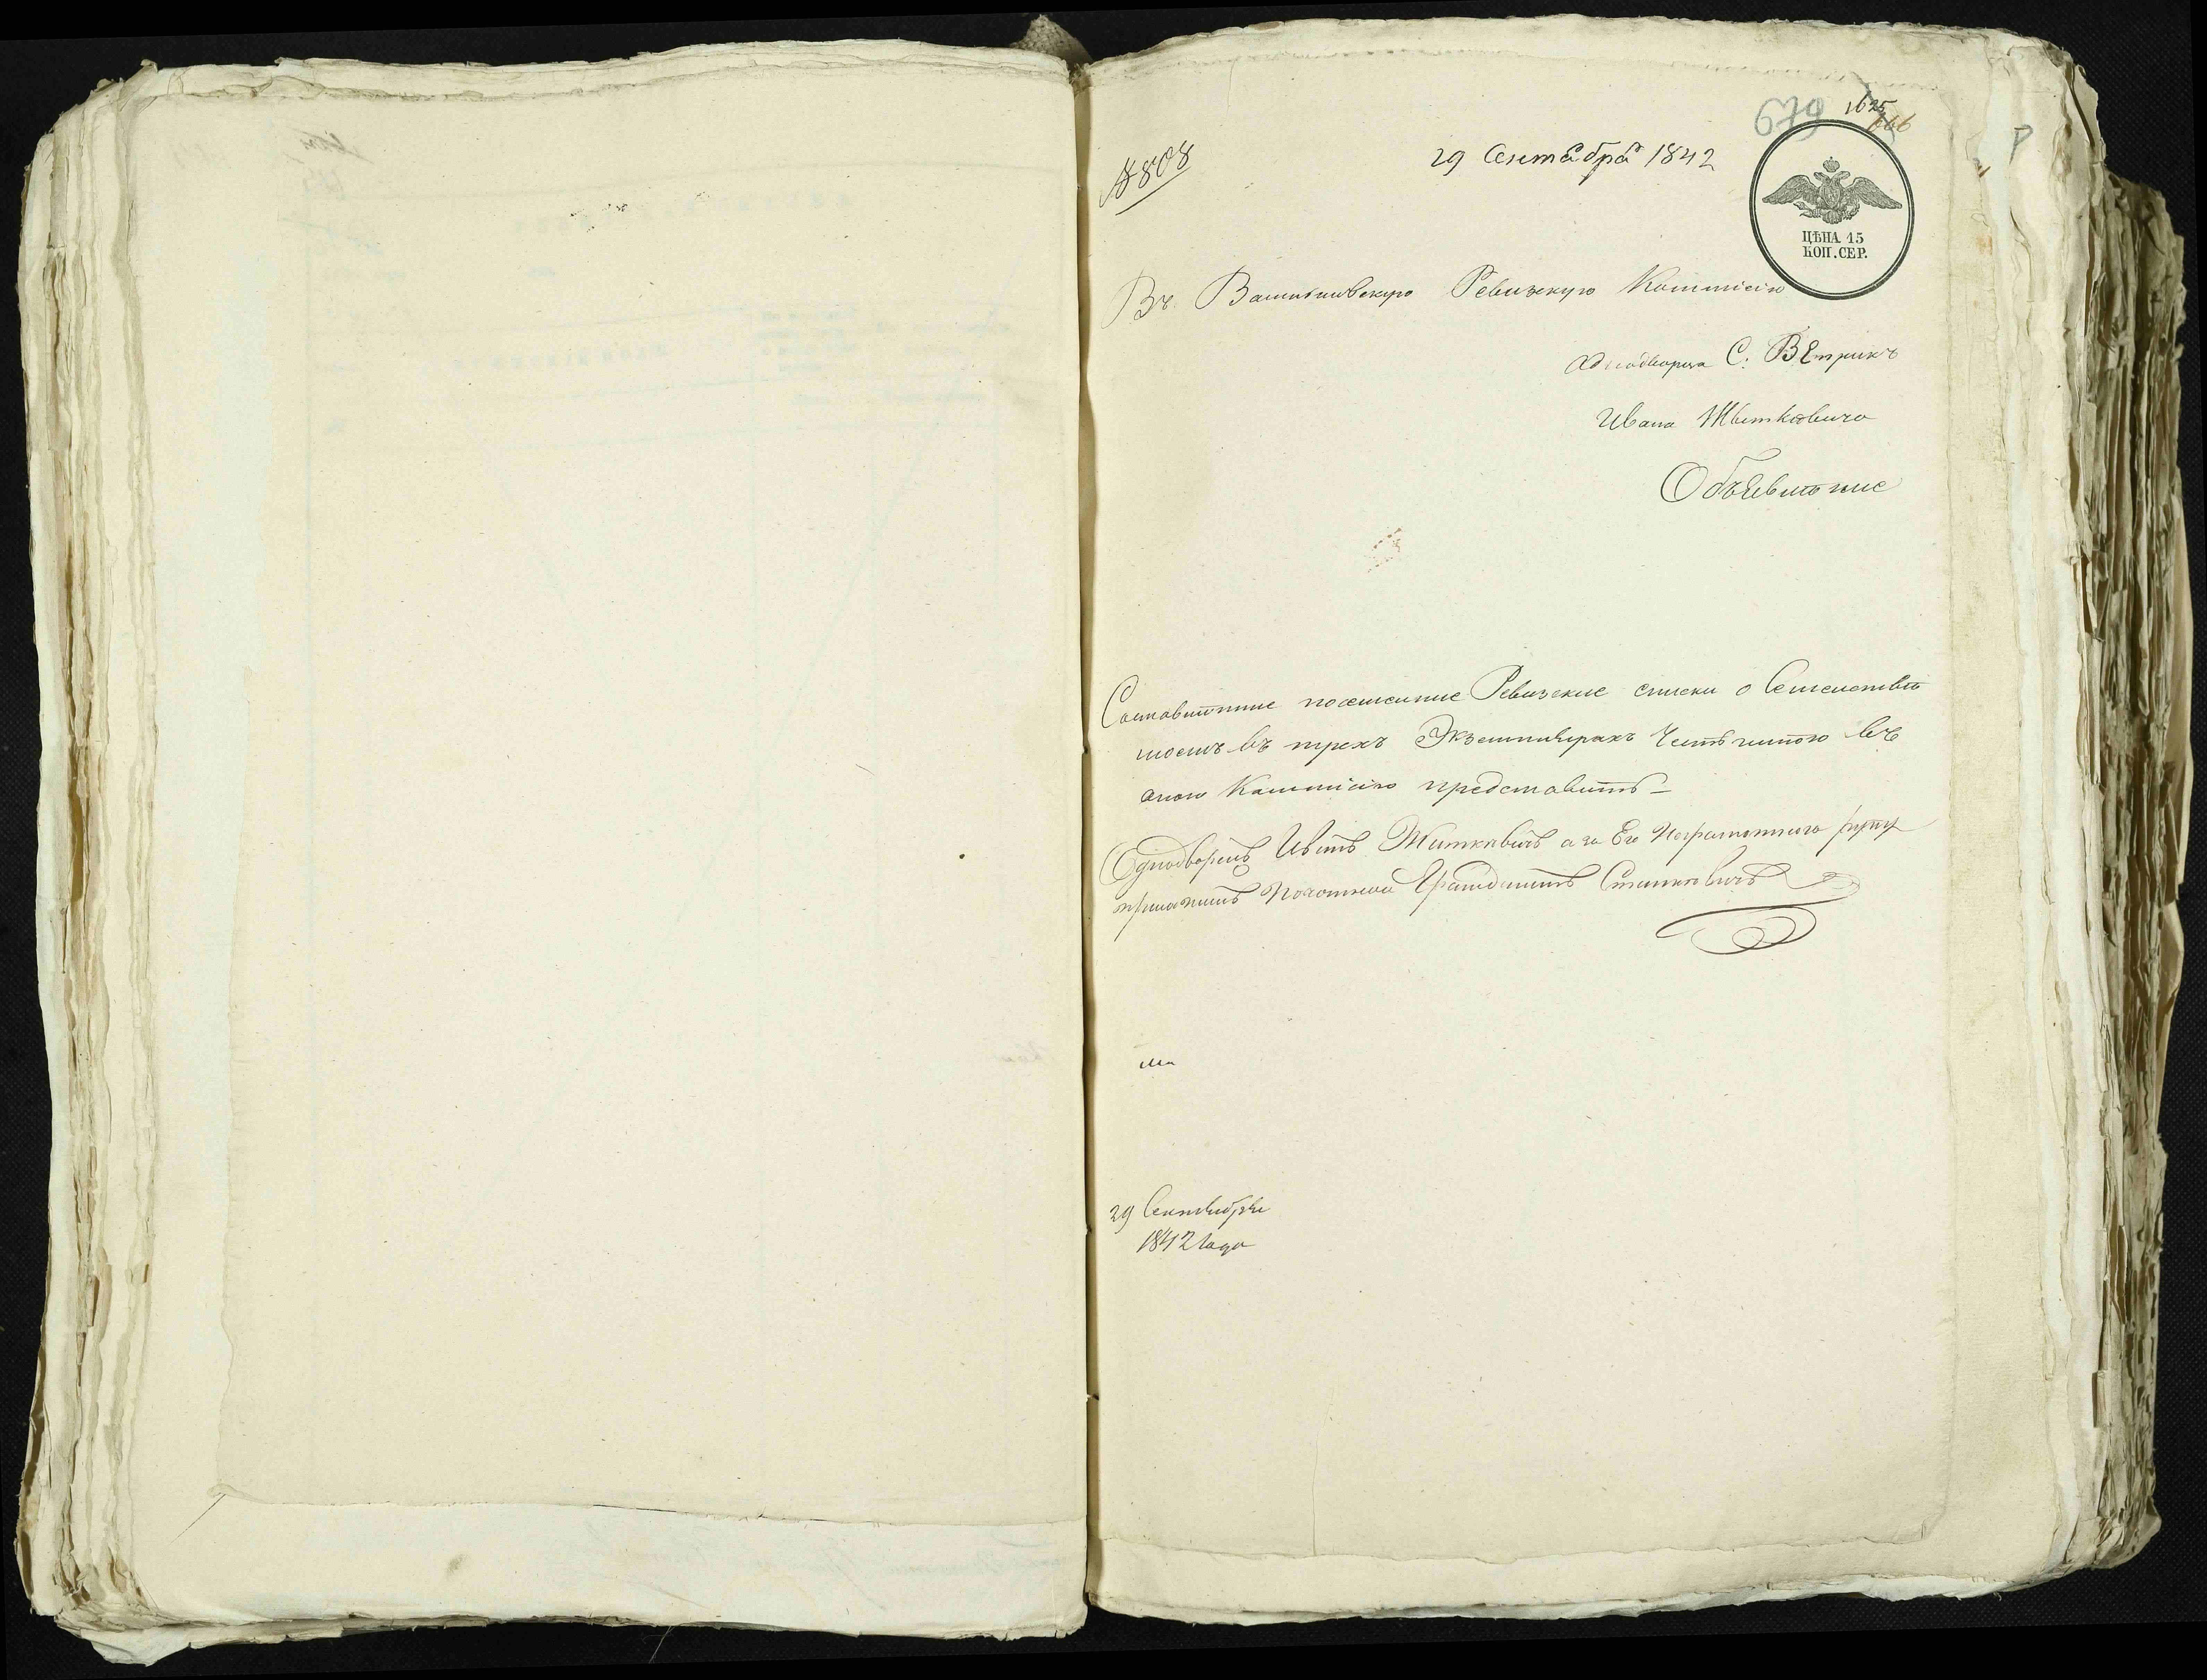 679 1625
666
8808
29 Сентября 1842
ЦѢНА 15
КОП. СЕР.
Въ Ревизскую Коммисію
Однодворца С. Вѣтрикъ
Ивана Житковича
Объявленіе
Составленные Ревизскіе списки о Семействѣ
моемъ въ трехъ Экземплярахъ Честь имѣю въ
оною Коммисію представить
Однодворецъ Иванъ Житкевичъ а за Его Неграмотного руку
приложилъ Почотный Гражданинъ Станкевичъ
29 Сентября
1842 года